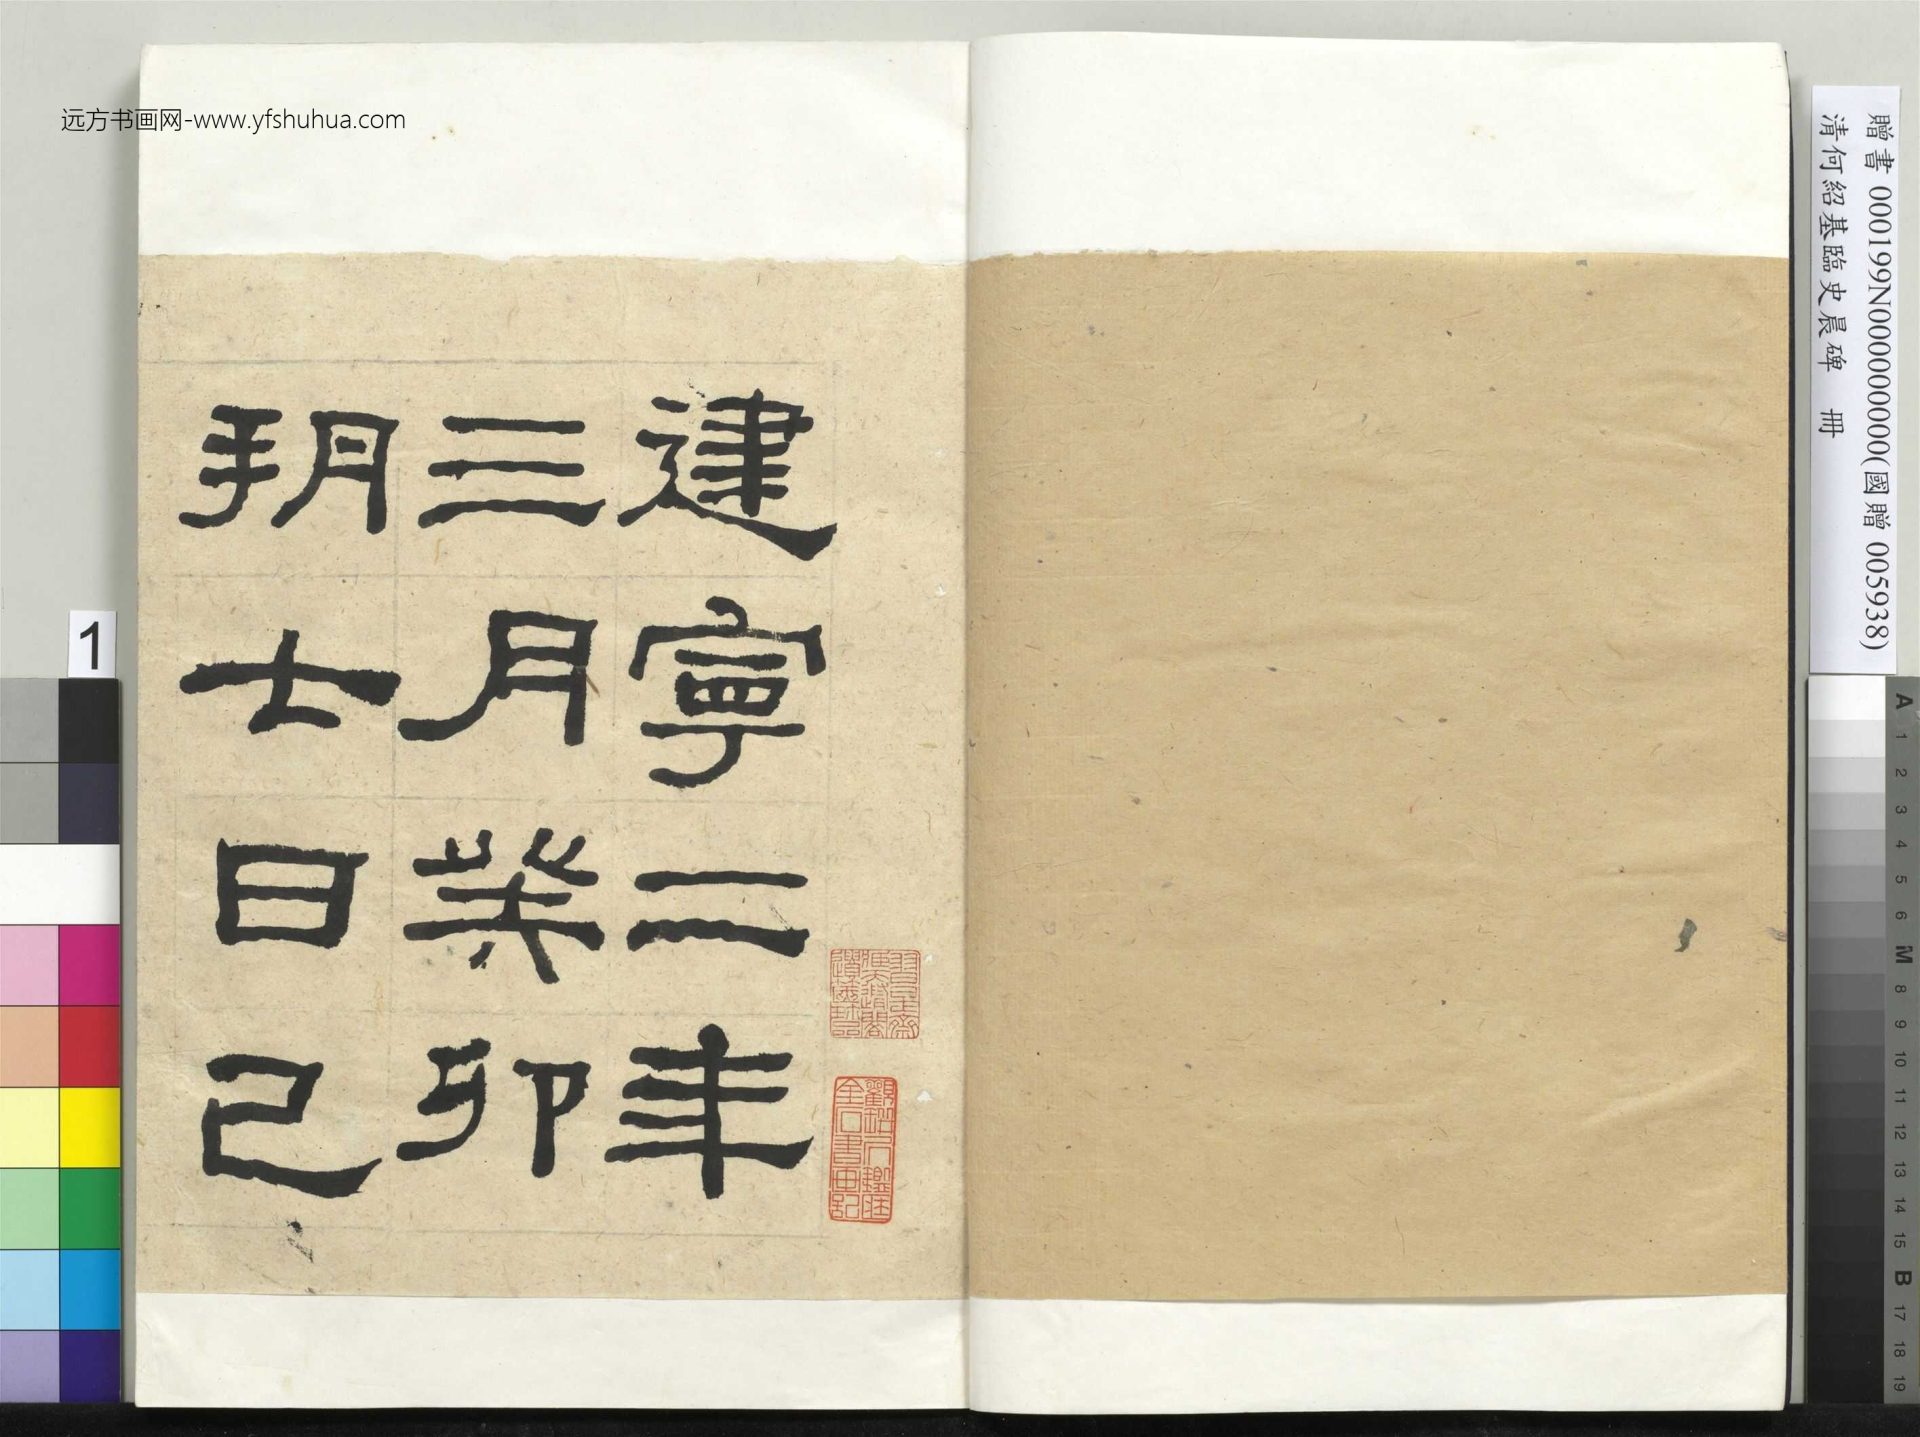 远方书画网-www.yfshuhua.com
贈書 000199N000000000(國贈 005938)
清何紹基臨史晨碑 冊
建寧二年
三月癸卯
朔七日己
觀銘行鑑
金石書畫記
1
A
1
2
3
4
5
6
M
8
9
10
11
12
13
14
15
B
17
18
19